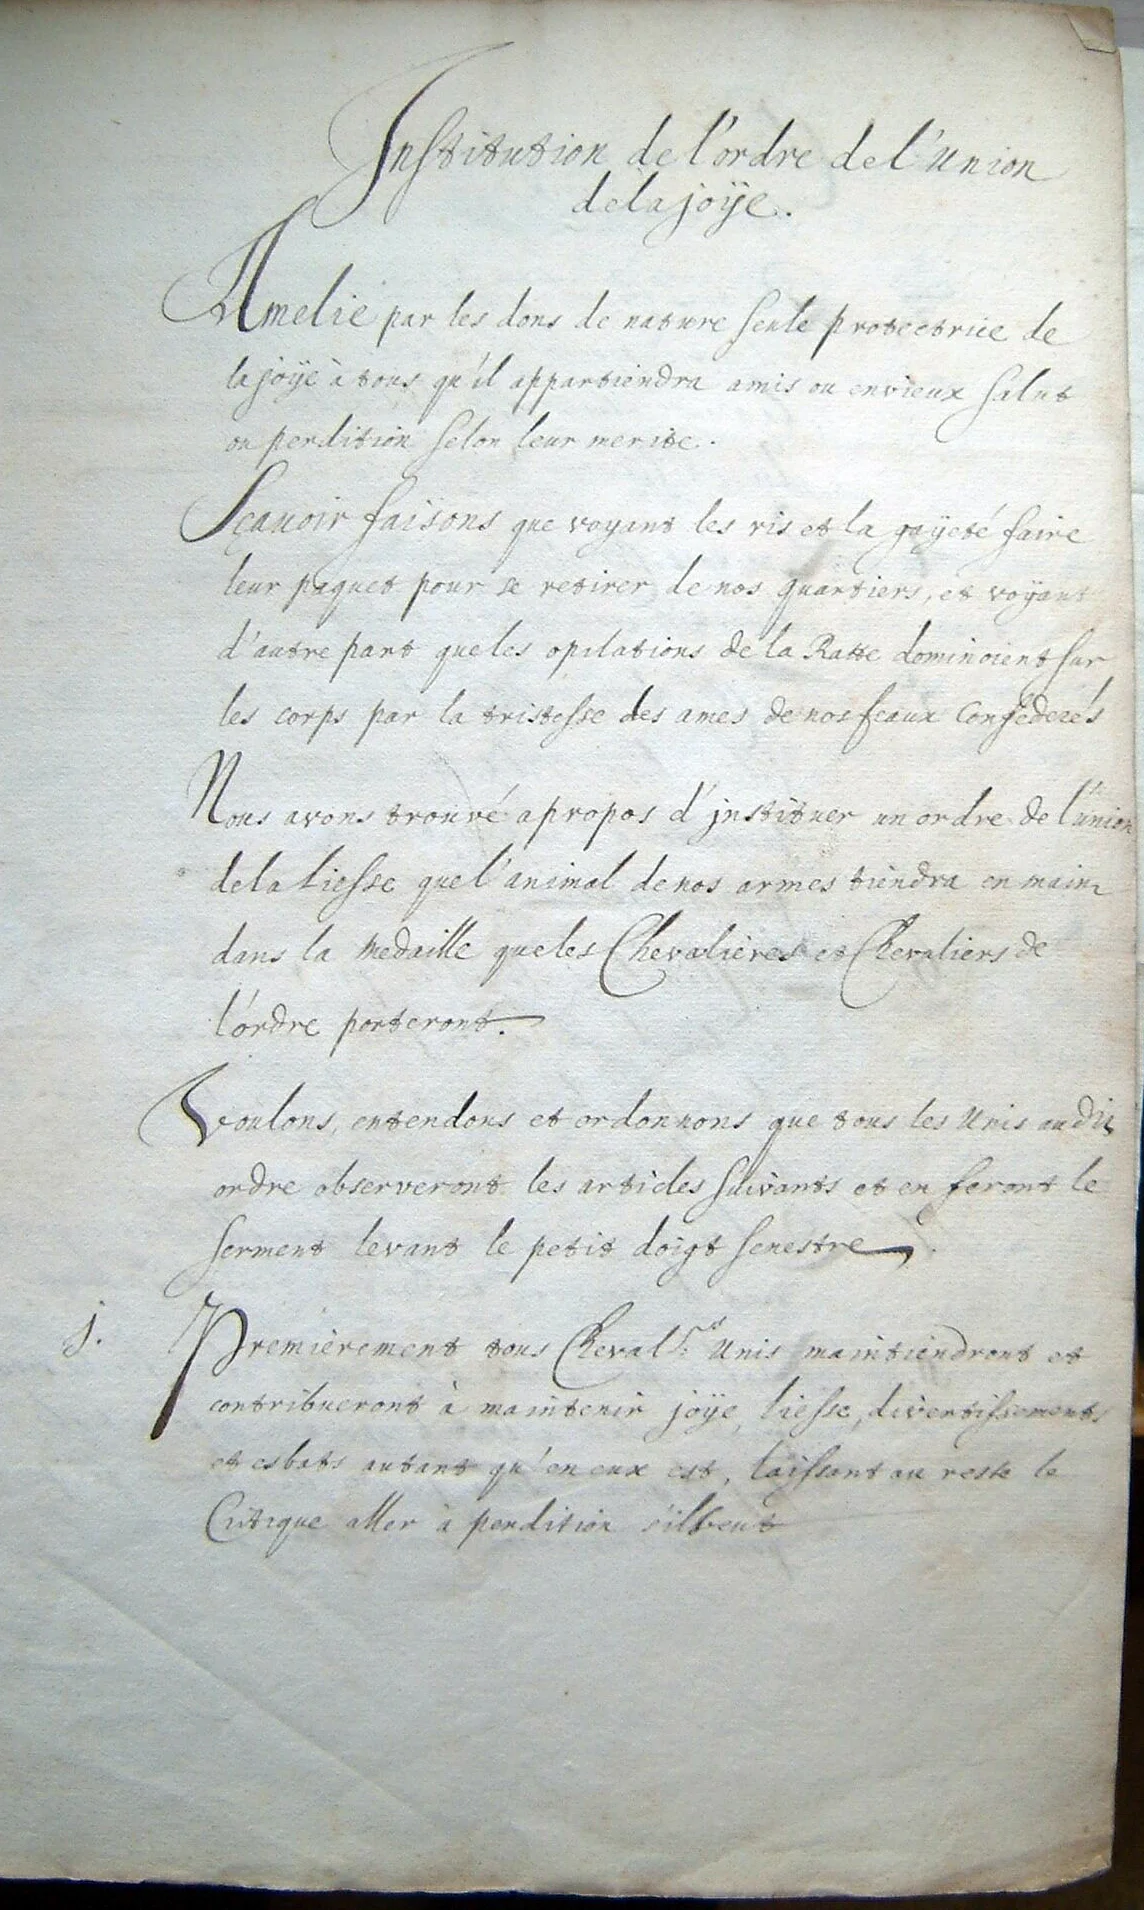 Institution de l'ordre de l'Union
de la joÿe.
Amelie par les dons de nature seule protectrice de
la joÿe à tous qu'il appartiendra amis ou envieux salut
ou perdition selon leur merite.
Sçauoir faisons que voyant les ris et la gayeté faire
leur paquet pour se retirer de nos quartiers, et voÿant
d'autre part que les opilations de la Ratte dominoient sur
les corps par la tristesse des ames de nos feaux Confederés
Nous avons trouvé apropos d'jnstituer un ordre de l'union
de la Liesse que l'animal de nos armes tiendra en main
dans la medaille que les Chevalières et Chevaliers de
l'ordre porteront.
Voulons, entendons et ordonnons que tous les Unis au dit
ordre observeront les articles suivants et en feront le
serment levant le petit doigt senestre.
j. Premierement tous Cheval.rs Unis maintiendront et
contribueront à maintenir joÿe, liesse, divertissements
et esbats autant qu'en eux est, laissant au reste le
Critique aller à perdition s'il veut